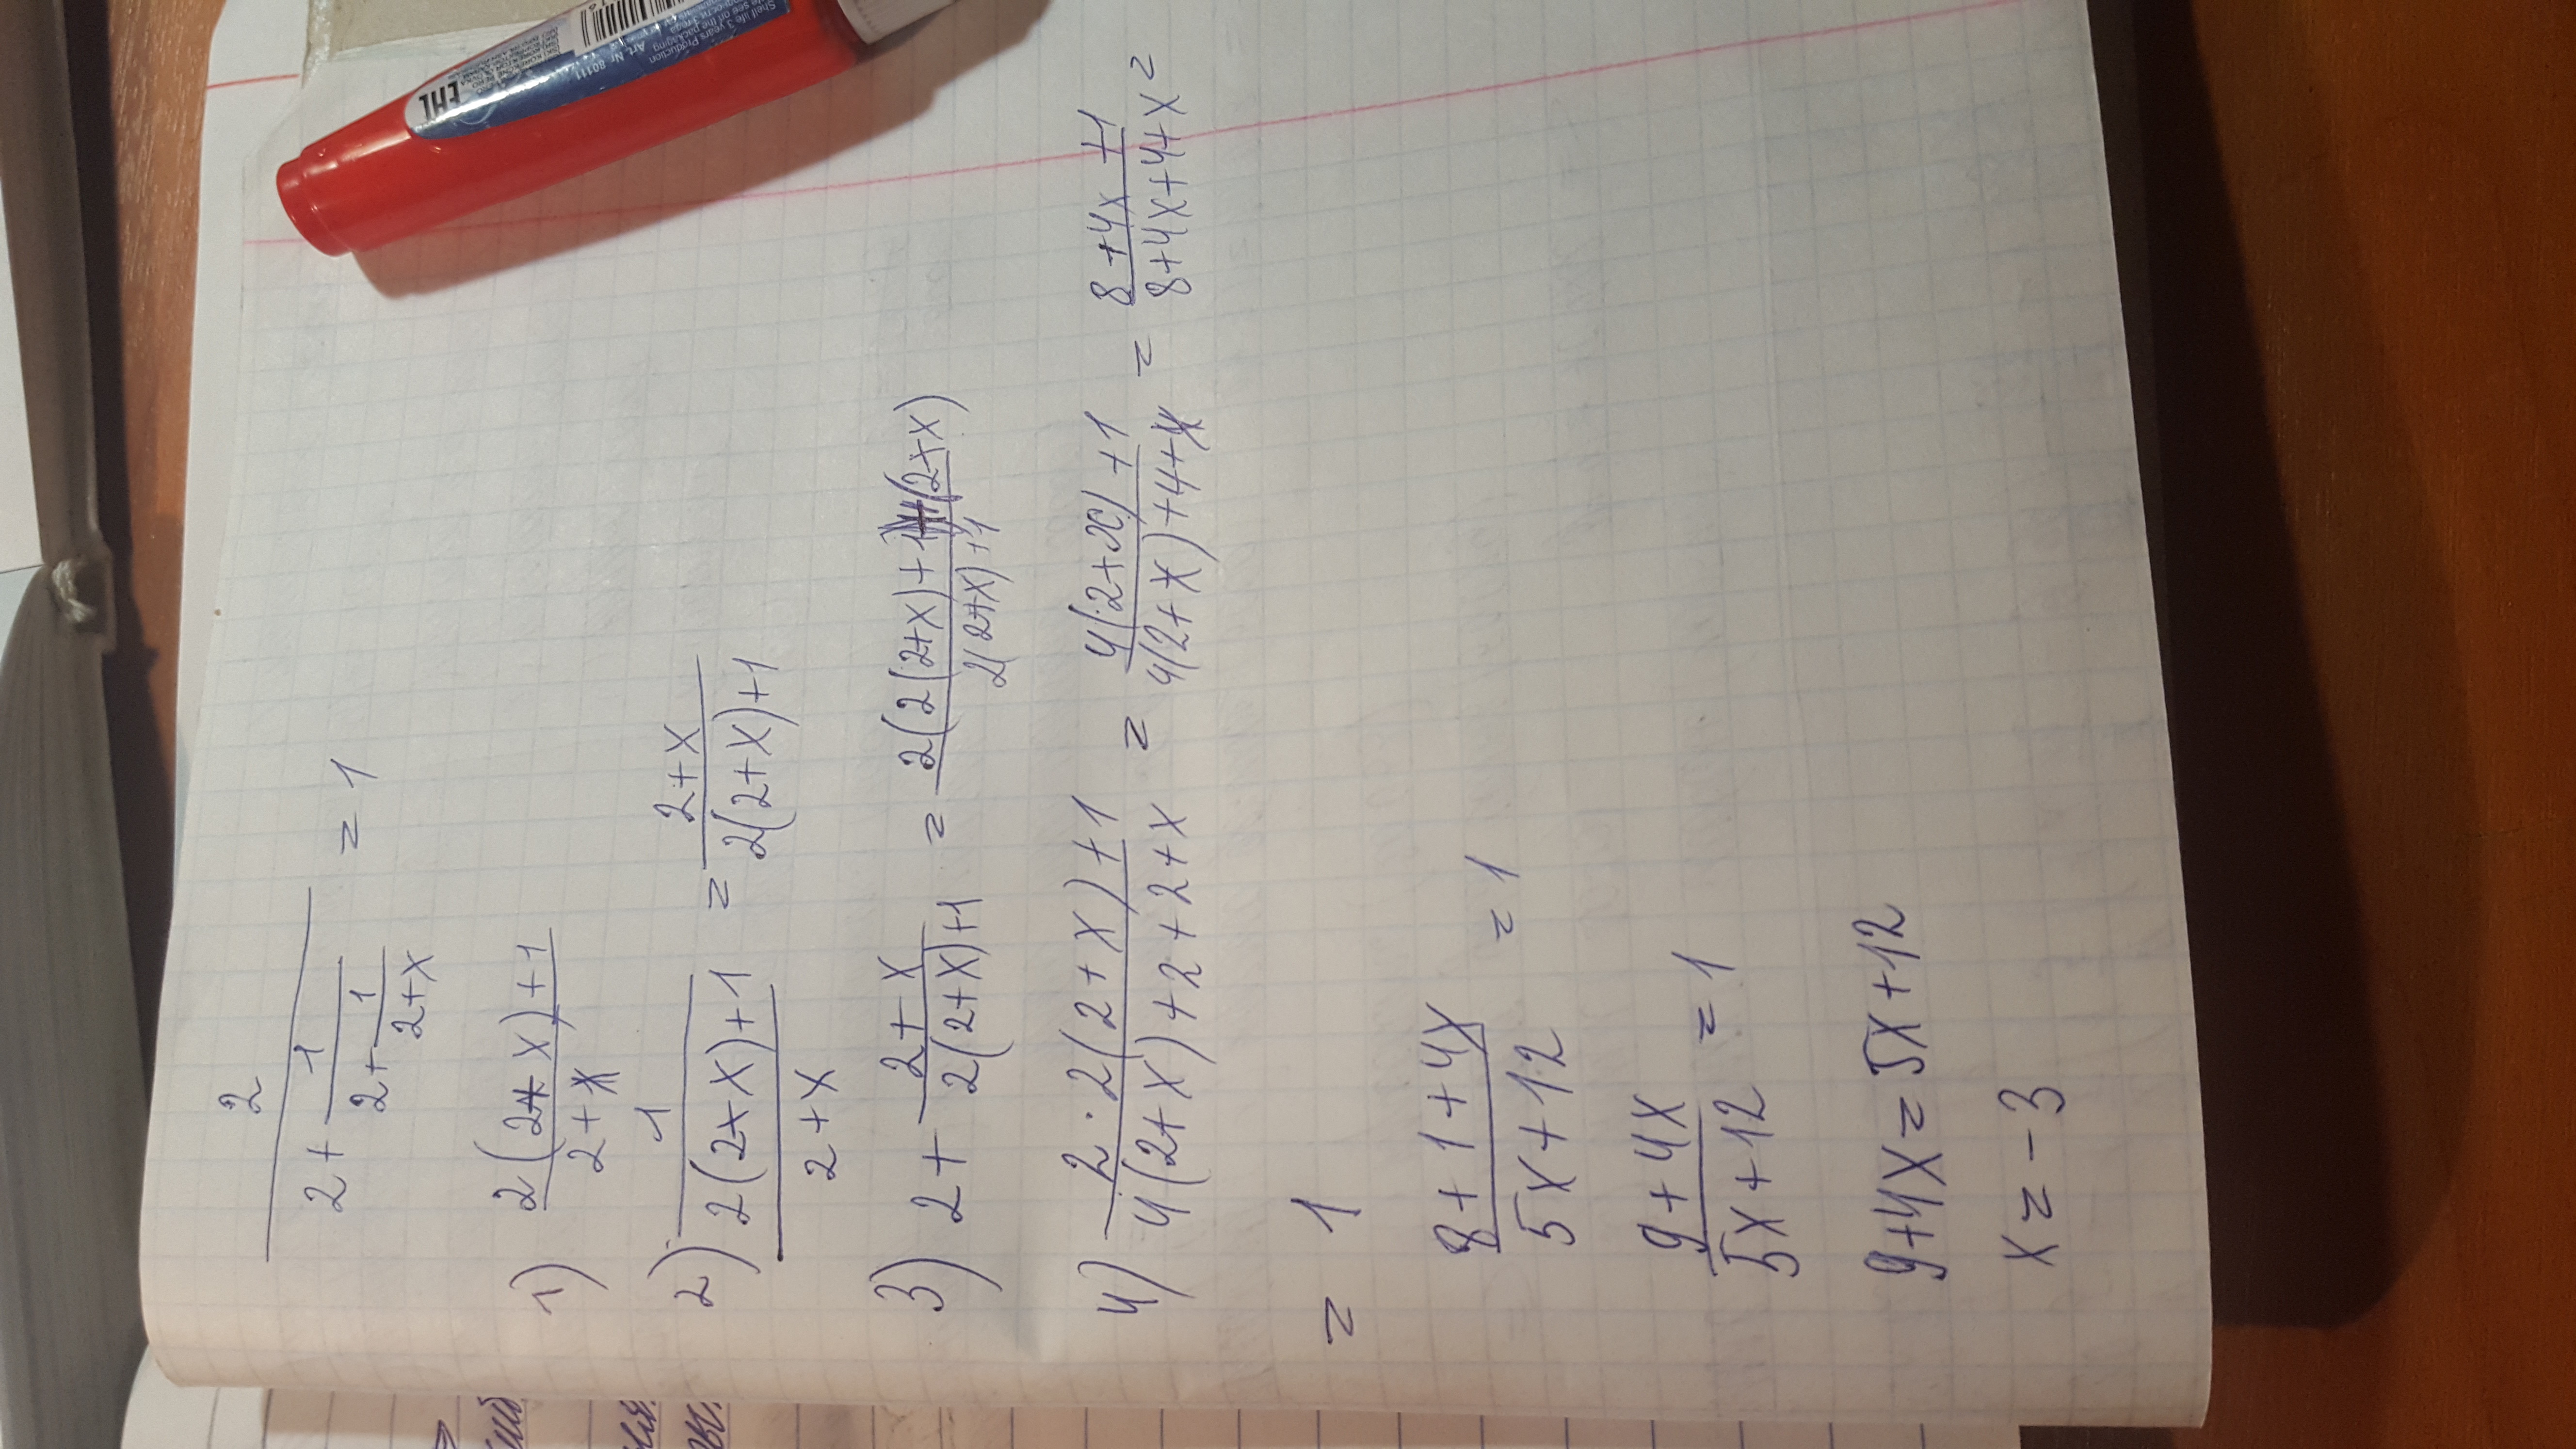 2/(2+1/(2+1/(2+x))) = 1
1) (2(2+x)+1)/(2+x)
2) 1/((2(2+x)+1)/(2+x)) = (2+x)/(2(2+x)+1)
3) 2+(2+x)/(2(2+x)+1) = (2(2(2+x)+1)+(2+x))/(2(2+x)+1)
4) (2·2(2+x)+1)/(4(2+x)+2+2+x) = (4(2+x)+1)/(4(2+x)+4+x) = (8+4x+1)/(8+4x+4+x) =
= 1
(8+1+4x)/(5x+12) = 1
(9+4x)/(5x+12) = 1
9+4x=5x+12
x=-3
Shelf life 3 years Production
Art. Nr 80111
EAC